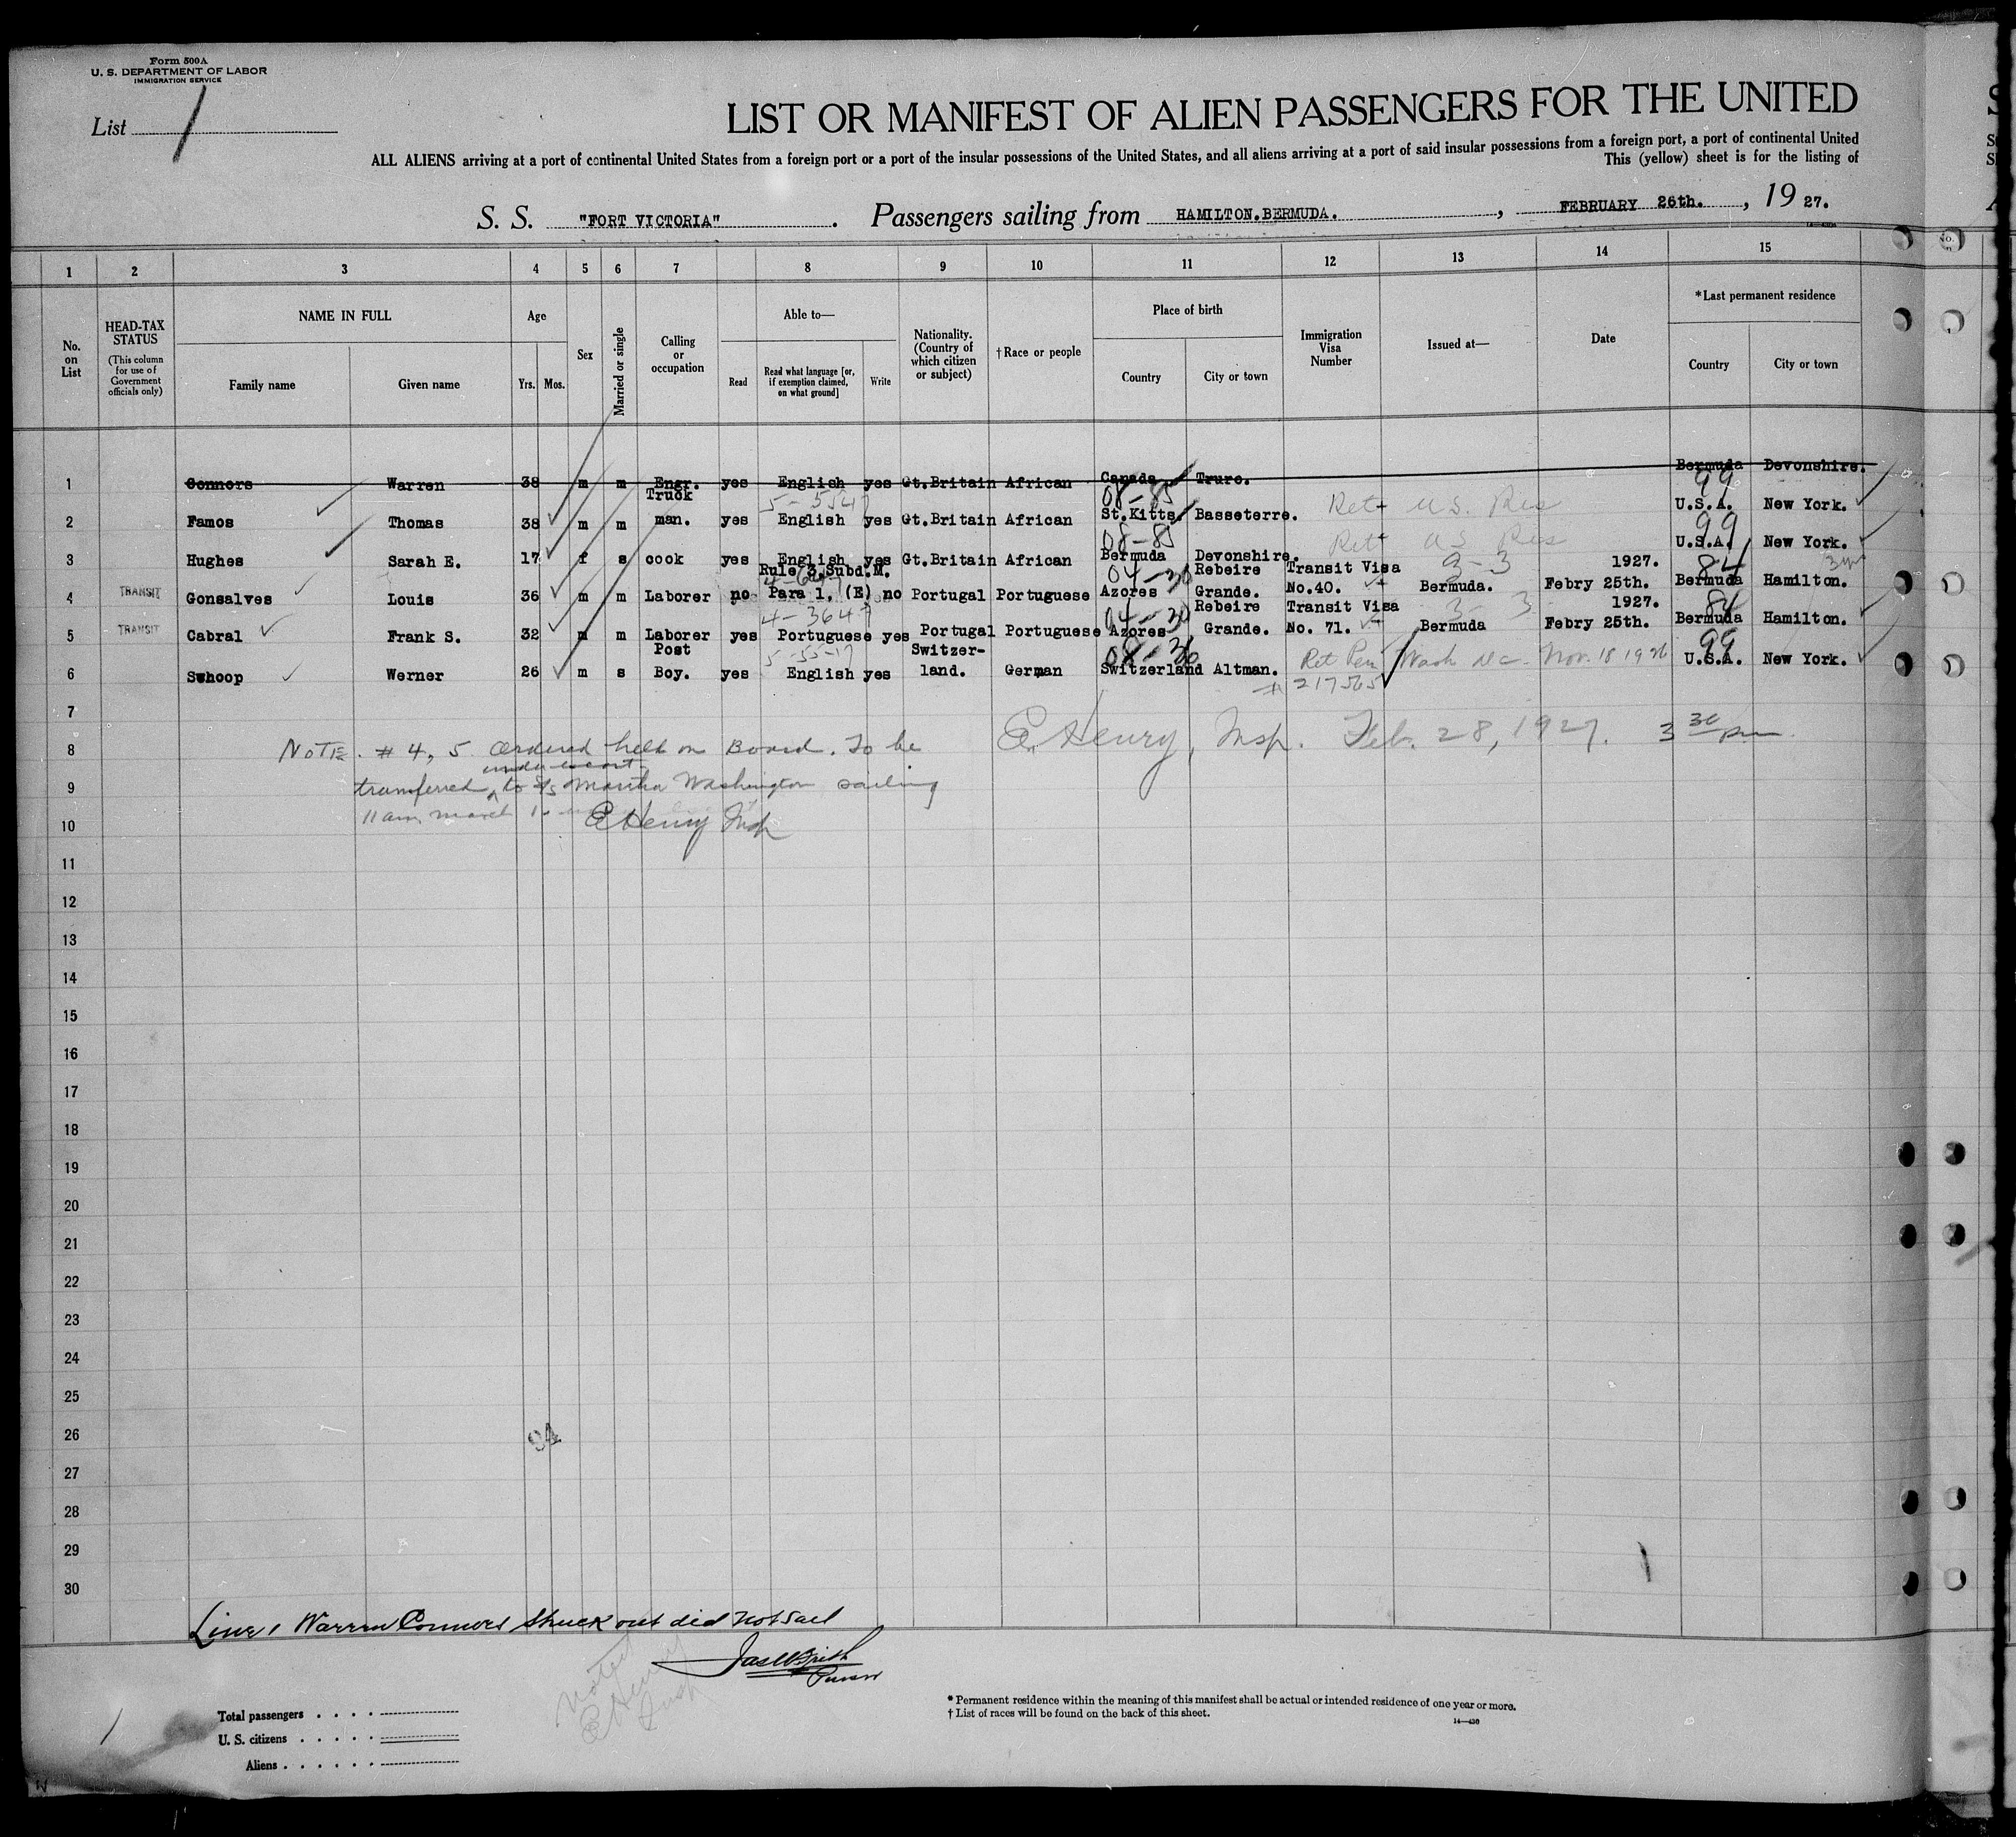 Form 500A
U. S. DEPARTMENT OF LABOR
IMMIGRATION SERVICE
List 1
LIST OR MANIFEST OF ALIEN PASSENGERS FOR THE UNITED
ALL ALIENS arriving at a port of continental United States from a foreign port or a port of the insular possessions of the United States, and all aliens arriving at a port of said insular possessions from a foreign port, a port of continental United
This (yellow) sheet is for the listing of
S. S. "FORT VICTORIA". Passengers sailing from HAMILTON.BERMUDA., FEBRUARY 26th., 19 27.
1 2 3 4 5 6 7 8 9 10 11 12 13 14 15
No. on List
HEAD-TAX STATUS
(This column for use of Government officials only)
NAME IN FULL
Family name Given name
Age
Yrs. Mos.
Sex
Married or single
Calling or occupation
Able to—
Read Read what language [or, if exemption claimed, on what ground] Write
Nationality. (Country of which citizen or subject)
† Race or people
Place of birth
Country City or town
Immigration Visa Number
Issued at—
Date
*Last permanent residence
Country City or town
1 Connors Warren 38 m m Engr. yes English yes Gt.Britain African Canada Truro. Bermuda Devonshire.
5-5547 08-85 99
2 Famos Thomas 38 m m Truck man. yes English yes Gt.Britain African St.Kitts Basseterre. Ret U.S. Res U.S.A. New York.
08-85 99
3 Hughes Sarah E. 17 f s cook yes English yes Gt.Britain African Bermuda Devonshire. Ret US Res U.S.A. New York.
04-30 3-3 84
4 TRANSIT Gonsalves Louis 36 m m Laborer no Rule 3 Subd.M. Para 1, (E) no Portugal Portuguese Azores Rebeire Grande. Transit Visa No.40. Bermuda. Febry 25th. 1927. Bermuda Hamilton.
4-3647 04-30 3-3 84
5 TRANSIT Cabral Frank S. 32 m m Laborer yes Portuguese yes Portugal Portuguese Azores Rebeire Grande. Transit Visa No. 71. Bermuda Febry 25th. 1927. Bermuda Hamilton.
5-55-17 08-36 99
6 Swhoop Werner 26 m s Post Boy. yes English yes Switzer-land. German Switzerland Altman. Ret Per Wash DC. Nov. 18 1926 U.S.A. New York.
# 217565
7
8 NOTE. # 4, 5 Ordered held on Board. To be
E. Henry, Insp. Feb. 28, 1927. 3 30 pm.
under escort
9 transferred to S/s Martha Washington sailing
10 11 am, March 1.
E Henry Insp
11
12
13
14
15
16
17
18
19
20
21
22
23
24
25
26
94
27
28
29
30
Line 1 Warren Connors Struck out did not sail
Purser
Noted
E Henry
Insp
Total passengers
U. S. citizens
Aliens
* Permanent residence within the meaning of this manifest shall be actual or intended residence of one year or more.
† List of races will be found on the back of this sheet.
14—430